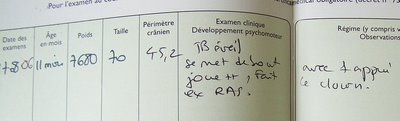 Pour l'examen au
médical obligatoire (décret n° 73
Date des examens
Âge en mois
Poids
Taille
Périmètre crânien
Examen clinique
Développement psychomoteur
Régime (y compris v
Observations
06
11 mois
7680
70
45,2
TB éveil
se met debout
joue ++, fait
ex RAS.
avec 1 appui
le clown.